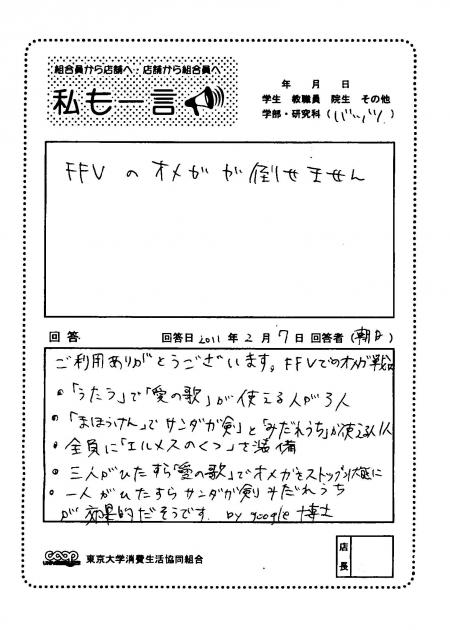 組合員から店舗へ・店舗から組合員へ
私も一言
年 月 日
学生 教職員 院生 その他
学部・研究科(バッツ)
FFVのオメガが倒せません
回答 回答日 2011年2月7日 回答者(朝日)
ご利用ありがとうございます。FFVでのオメガ戦は
・「うたう」で「愛の歌」が使える人が3人
・「まほうけん」でサンダガ剣と「みだれうち」が使える人1人
・全員に「エルメスのくつ」を装備
・三人がひたすら「愛の歌」でオメガをストップ状態に
・一人がひたすらサンダガ剣みだれうち
が効果的だそうです。 by google 博士
coop 東京大学消費生活協同組合
店長